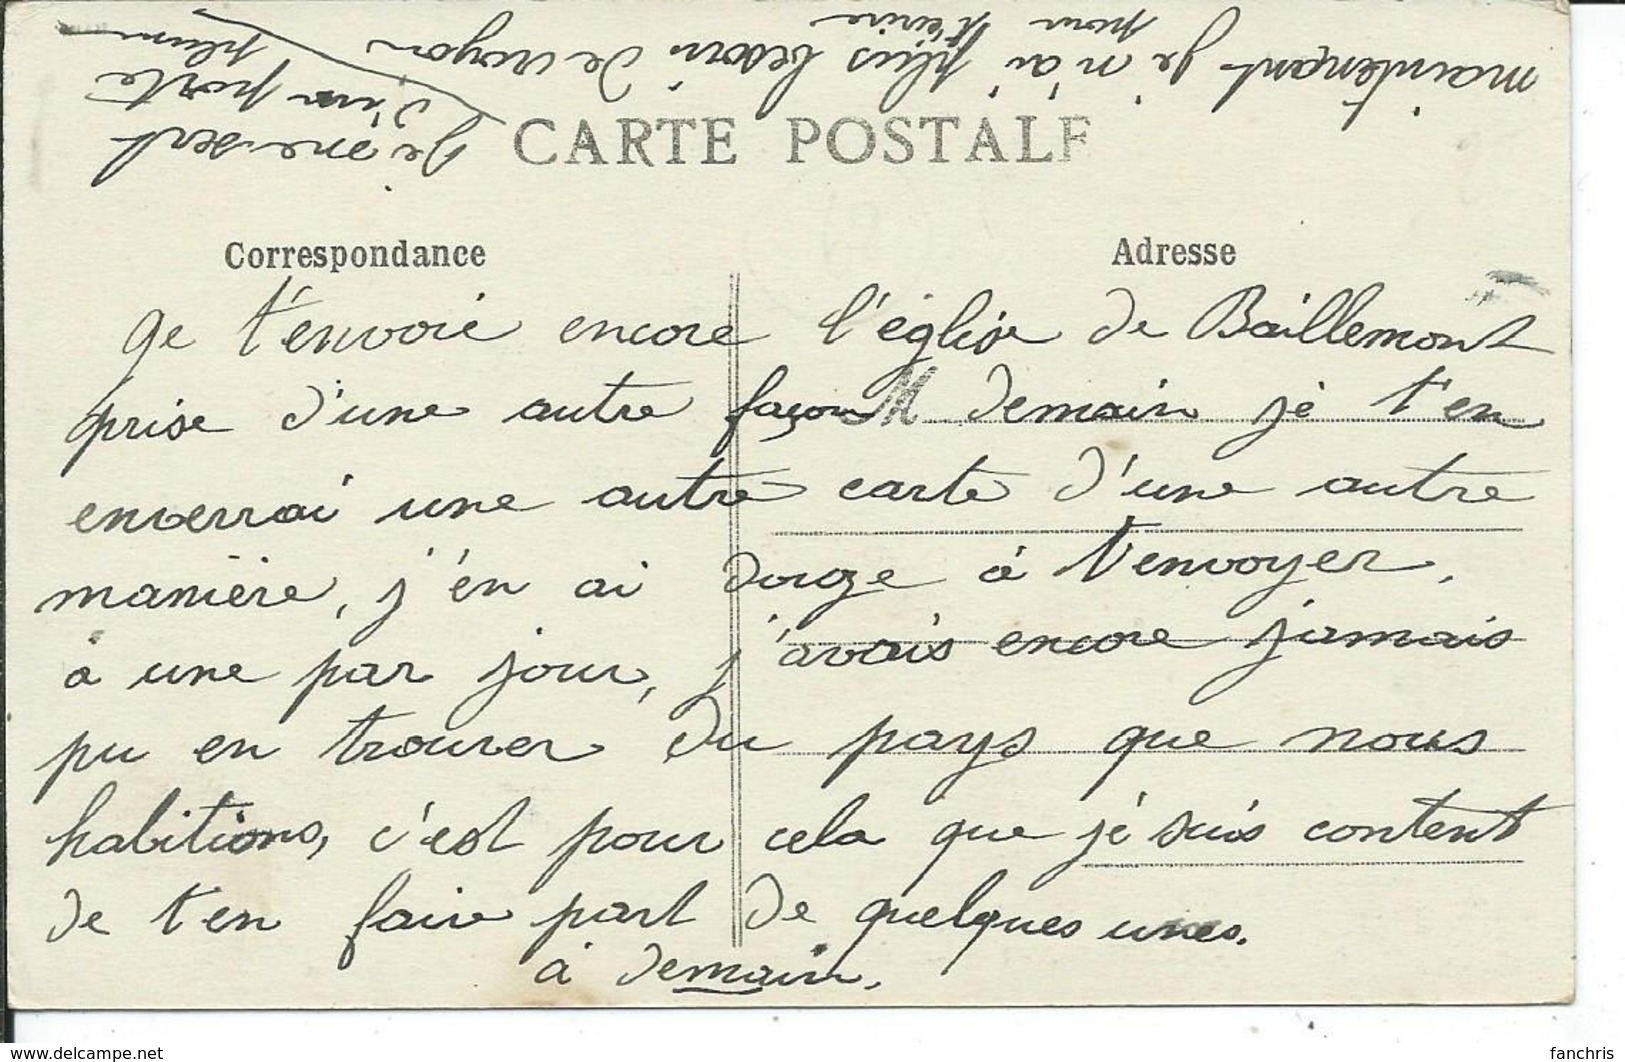 maintenant je n'ai plus besoin de crayon
pour t'écrire
je me sert
d'un porte
plume
CARTE POSTALE
Correspondance
Adresse
Je t'envoie encore l'église de Baillemont
prise d'une autre façon M demain je t'en
enverrai une autre carte d'une autre
manière, j'en ai douze à t'envoyer,
à une par jour, j'avais encore jamais
pu en trouver du pays que nous
habitions, c'est pour cela que je suis content
de t'en faire part de quelques unes.
à demain.
www.delcampe.net
fanchris